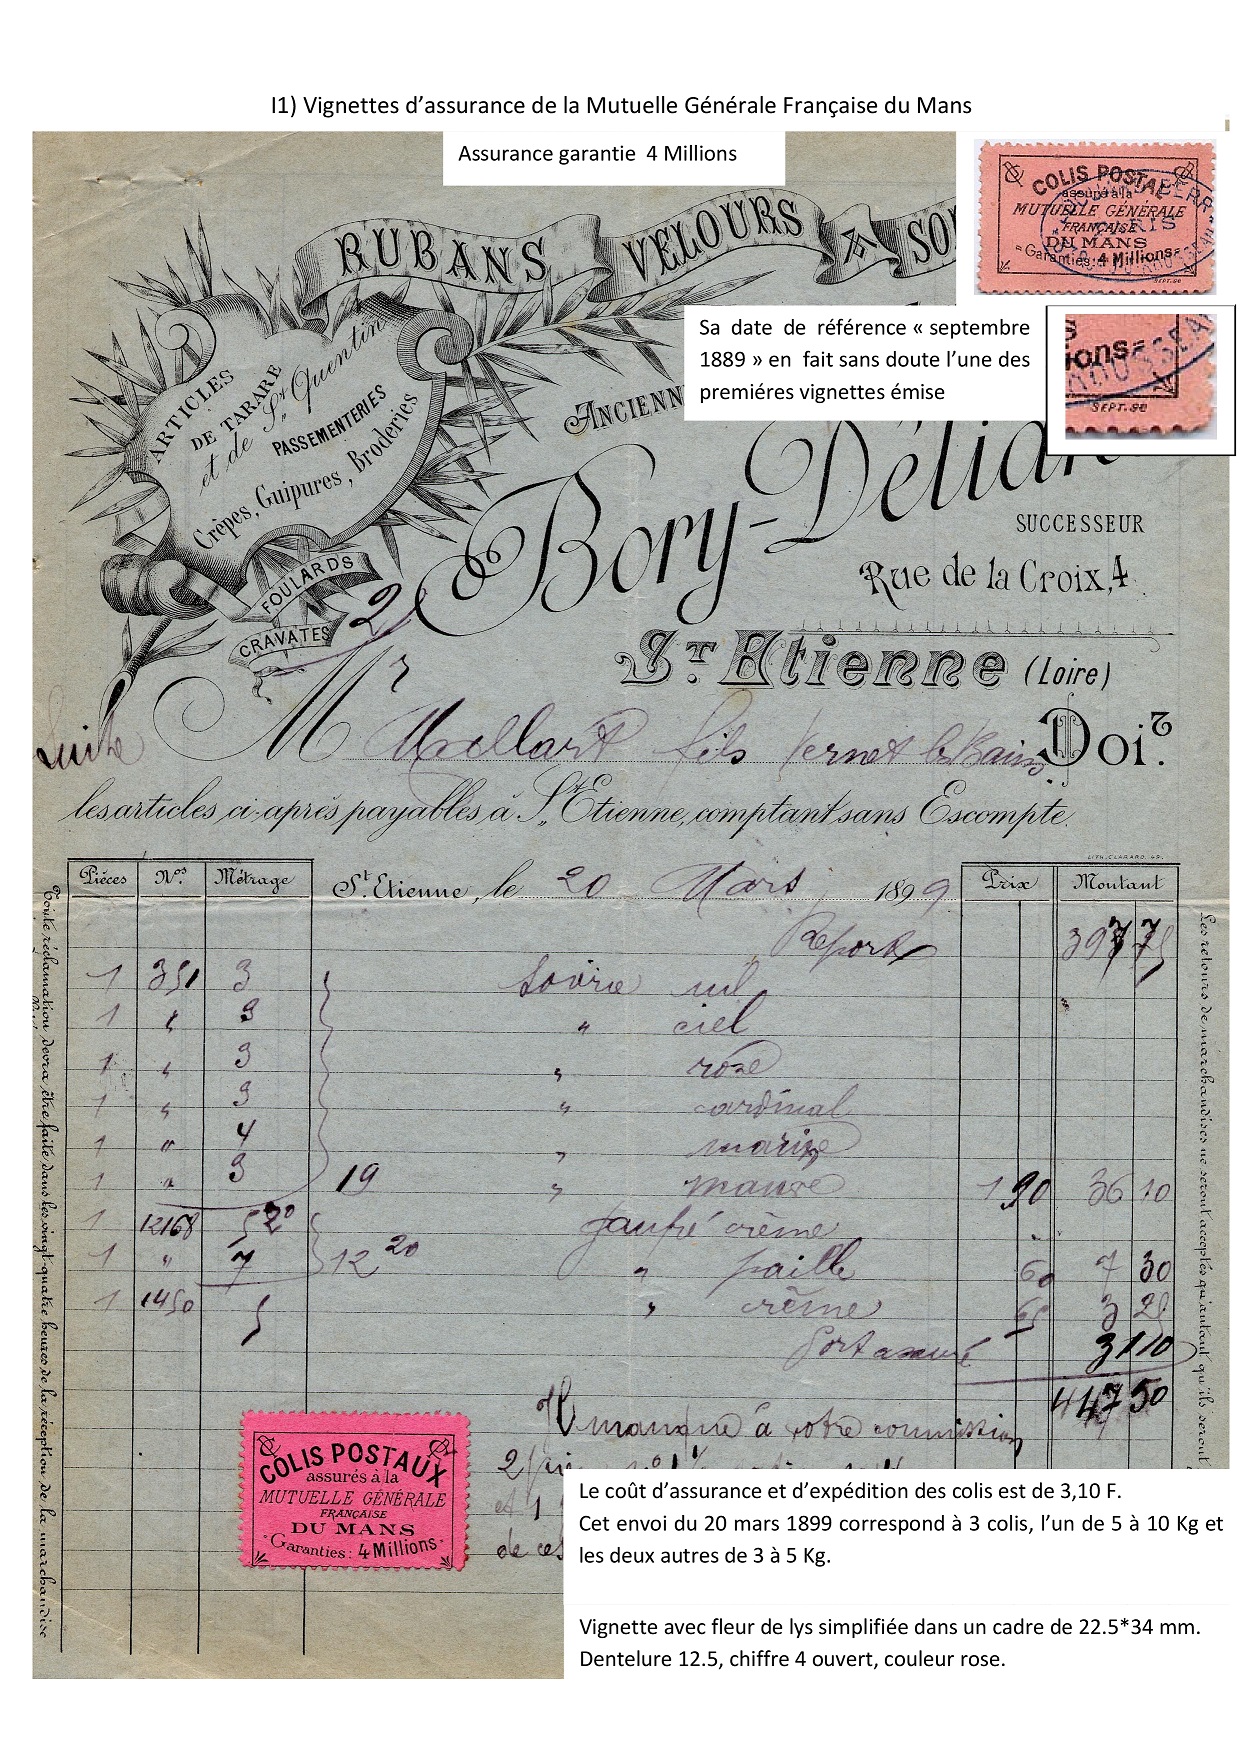 I1) Vignettes d’assurance de la Mutuelle Générale Française du Mans
Assurance garantie 4 Millions
COLIS POSTAL
assuré à la
MUTUELLE GÉNÉRALE
FRANÇAISE
DU MANS
Garanties: 4 Millions
SEPT.90
Sa date de référence « septembre
1889 » en fait sans doute l’une des
premiéres vignettes émise
ions
SEPT.90
RUBANS VELOURS & SO
ARTICLES
DE TARARE
et de St Quentin
PASSEMENTERIES
Crèpes, Guipures, Broderies
FOULARDS
CRAVATES
ANCIENN
Bory-Délia
SUCCESSEUR
Rue de la Croix, 4
ST Etienne (Loire)
2
Suite
Mr fils Vernet les Bains Doit
les articles ci-après payables à St Etienne, comptant sans Escompte.
LITH. CLARARD. 49.
Pièces Nos. Métrage St Etienne, le 20 Mars 1899 Prix Montant
Report 397 75
1 351 3 uil
1 " 3 " ciel
1 " 3 " rose
1 " 3 " cardinal
1 " 4 " marine
1 " 3 19 " mauve 1 90 36 10
1 12168 5 20 gaufré crème
1 " 7 12 20 " paille 60 7 30
1 1450 5 " crème 65 3 25
Port assuré 3 10
447 50
Il manque à votre commission
2
et 1
de ces
Toute réclamation devra être faite dans les vingt-quatre heures de la réception de la marchandise
Les retours de marchandises ne seront acceptés qu'autant qu'ils seront
COLIS POSTAUX
assurés à la
MUTUELLE GÉNÉRALE
FRANÇAISE
DU MANS
Garanties: 4 Millions
Le coût d’assurance et d’expédition des colis est de 3,10 F.
Cet envoi du 20 mars 1899 correspond à 3 colis, l’un de 5 à 10 Kg et
les deux autres de 3 à 5 Kg.
Vignette avec fleur de lys simplifiée dans un cadre de 22.5*34 mm.
Dentelure 12.5, chiffre 4 ouvert, couleur rose.